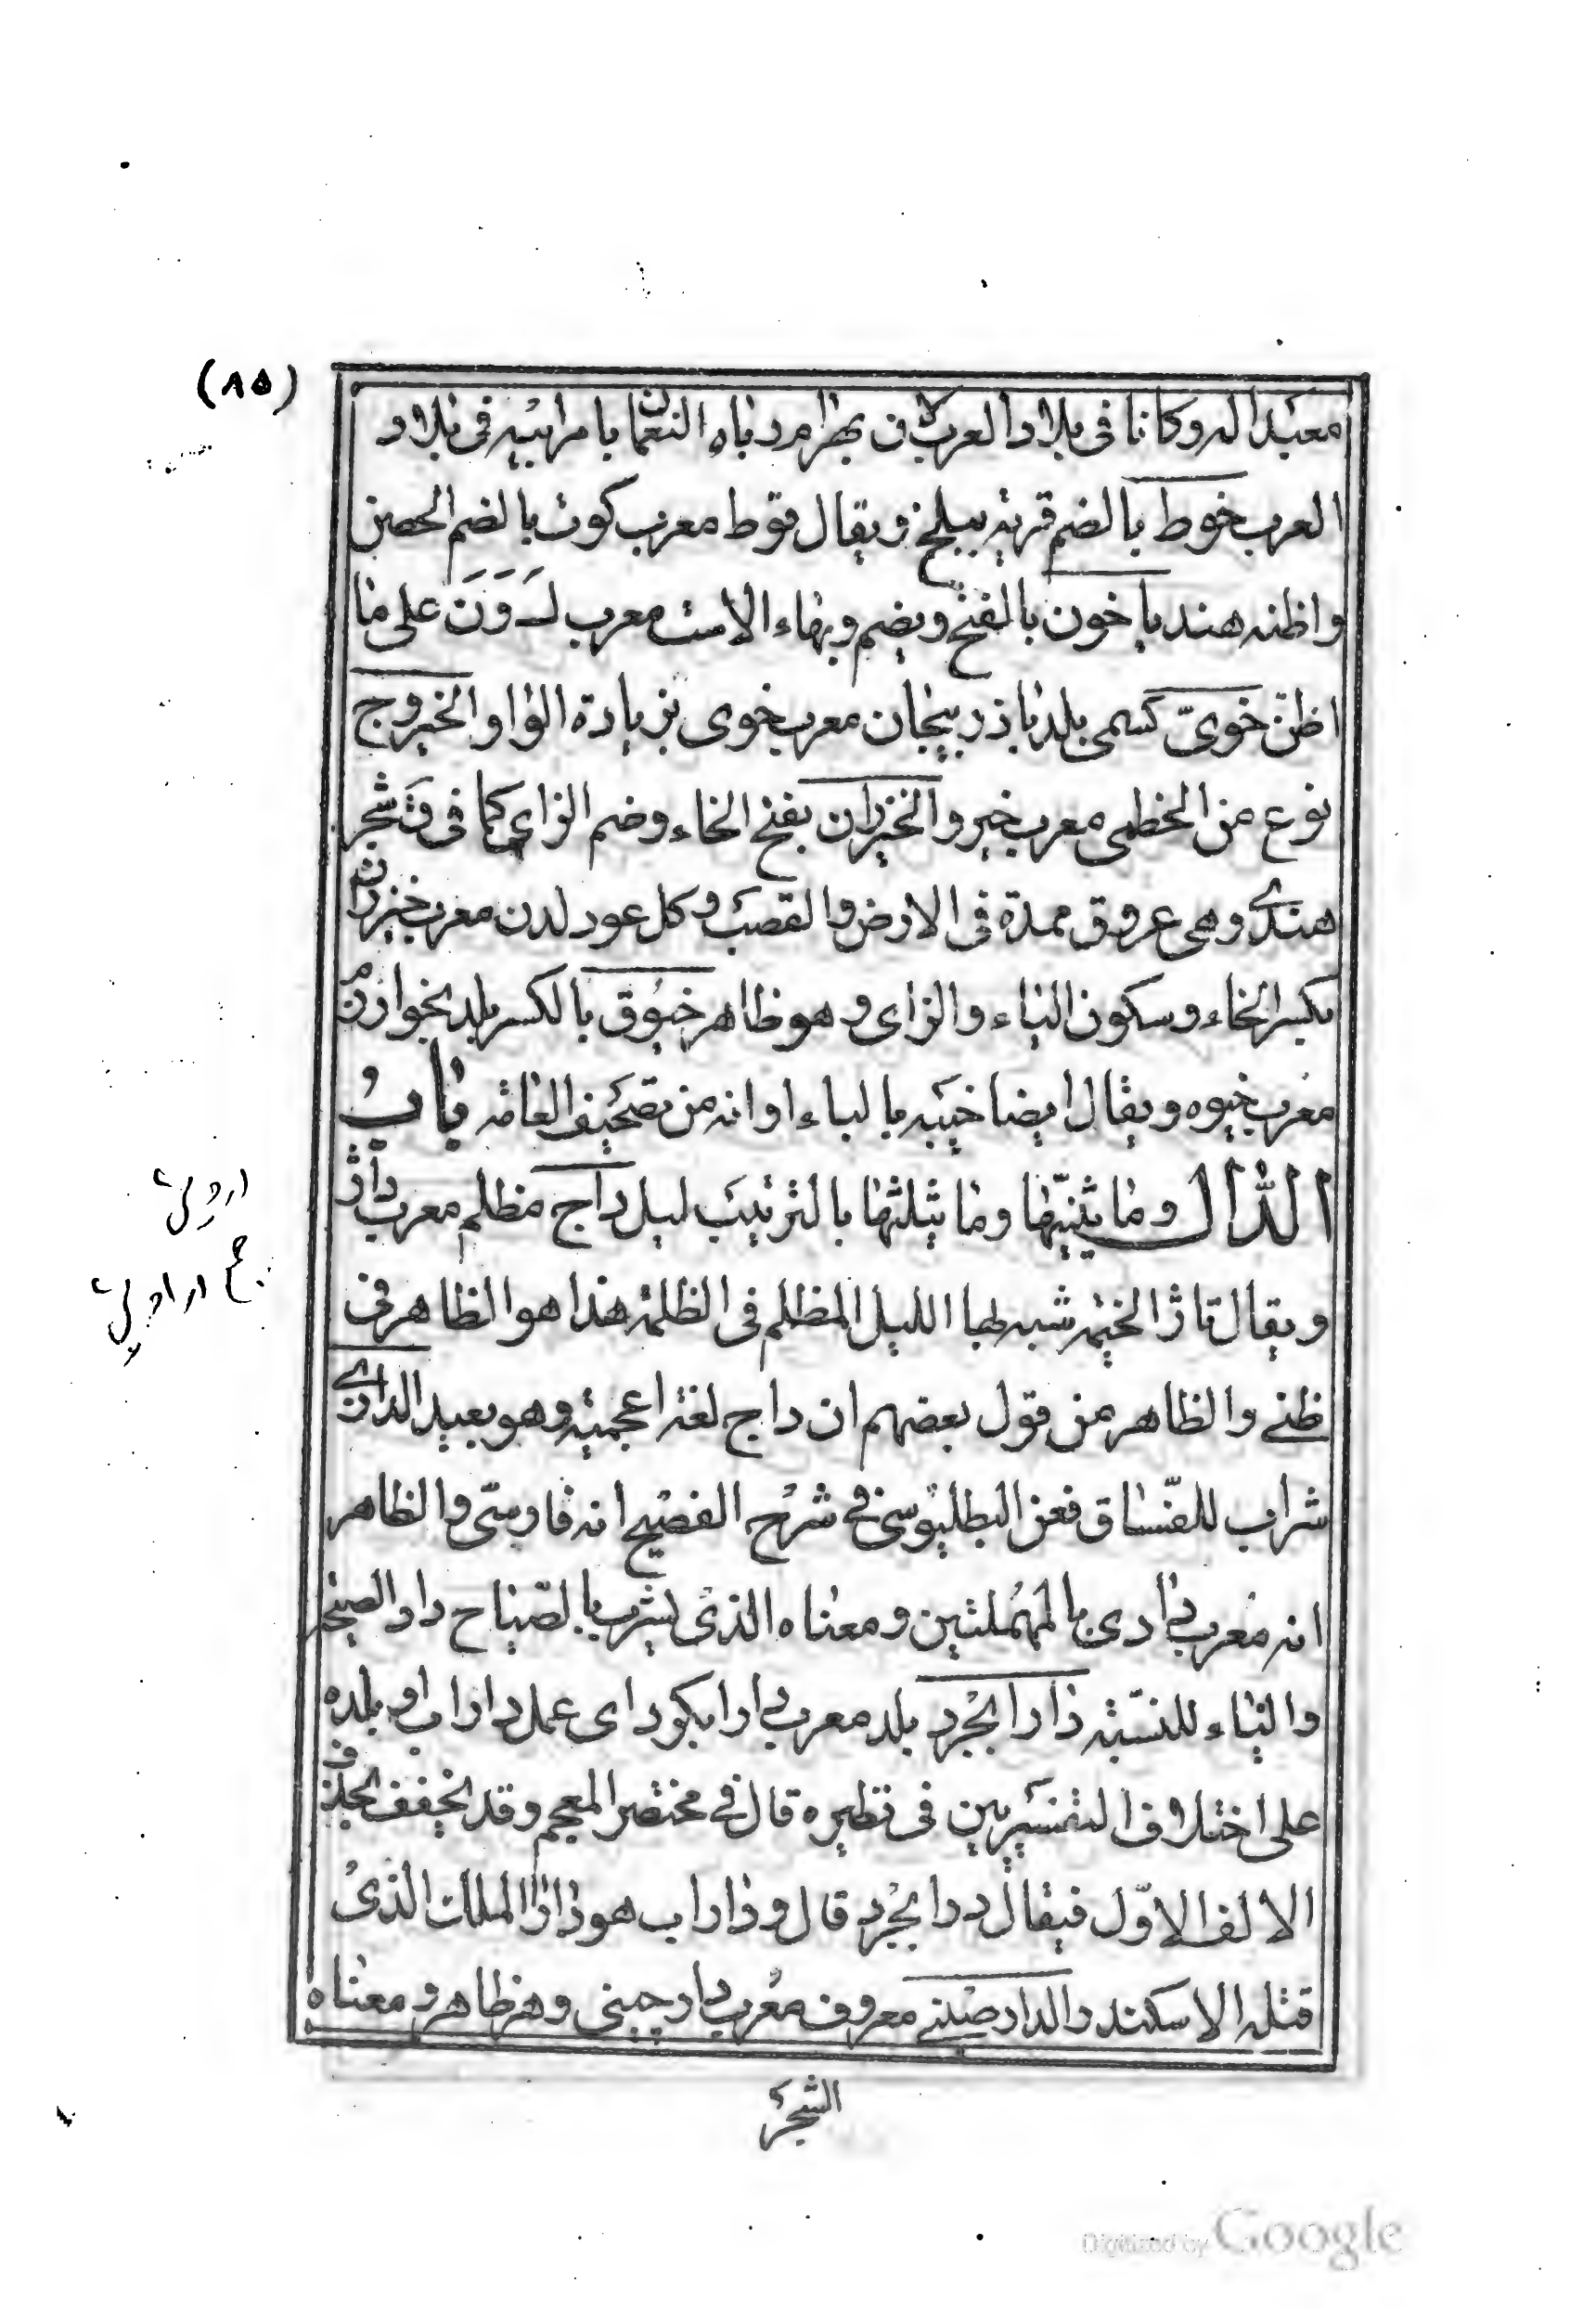 (٨٥)
معبد له وكانا فى بلاد العرب لان بهرام رباه النعمان بامر ابيه فى بلاد
العرب خوط بالضم قرية ببلخ ويقال قوط معرب كوت بالضم الحصن
واظنه هنديا خون بالفتح ويضم وبهاء الاست معرب على ما
اظن خوىّ كسمى بلد باذربيجان معرب خوى بزيادة الواو الخيروج
نوع من الخطمى معرب خيرو الخيزران بفتح الخاء وضم الزاى كما فى شجر
هندى وهى عروق ممدة فى الارض والقصب وكل عود لدن معرب خيزران
بكسر الخاء وسكون الياء والزاى وهو ظاهر خيوق بالكسر بلد بخوارزم
معرب خيوه ويقال ايضا خيبه بالباء او انه من تصحيف العامه باب
الدال وما يثنيّها وما يثلثها بالترتيب ليل داج مظلم معرب داژ
ويقال تاژ الخيمه شبه بها الليل المظلم فى الظلمة هذا هو الظاهر فى
ظنى والظاهر من قول بعضهم ان داج لغة اعجمية وهو بعيد الداذى
شراب للفسّاق فعن البطليوسى فى شرح الفصيح انه فارسىّ والظاهر
انه معرب دادى بالمهملتين ومعناه الذى يشرب بالصّباح داد الصبح
والياء للنسّبة دارابجرد بلد معرب دارابكرد اى عمل داراب او بلده
على اختلاف التفسيرين فى نظيره قال فى مختصر المعجم وقد يخفف بحذف
الالف الاوّل فيقال درابجرد قال وداراب هو دارا الملك الذى
قتله الاسكندر الدارصينى معروف معرب دارچينى وهو ظاهر ومعناه
الشجر
Digitized by Google